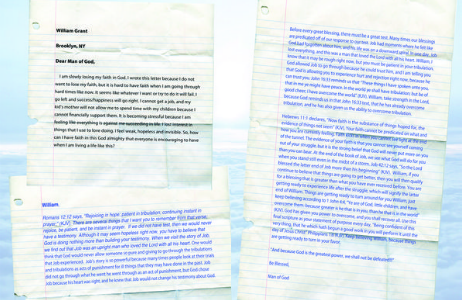 William Grant
Brooklyn, NY
Dear Man of God,
I am slowly losing my faith in God, I wrote this letter because I do not
want to lose my faith, but it is hard to have faith when I am going through
hard times like now. It seems like whatever I want or try to do it will fall
go left and success/happiness will go right. I cannot get a job, and my
kid's mother will not allow me to spend time with my children because I
cannot financially support them. It is becoming stressful because I am
feeling like everything is against me succeeding in life. I lost interest in
things that I use to love doing. I feel weak, hopeless and invisible. So, how
can I have faith in this God almighty that everyone is encouraging to have
when I am living a life like this?
William,
Romans 12:12 says, "Rejoicing in hope; patient in tribulation; continuing instant in
prayer," (KJV). There are several things that I want you to remember from that verse,
rejoice, be patient, and be instant in prayer. If we did not have test, then we would never
have a testimony. Although it may seem hopeless right now, you have to believe that
God is doing nothing more than building your testimony. When we visit the story of Job,
we find out that Job was an upright man who loved the Lord with all his heart. One would
think that God would never allow someone in pure and giving to go through the tribulations
that Job experienced. Job's story is so powerful because many times people look at their trials
and tribulations as act of punishment for ill things that they may have done in the past. Job
did not go through what he went through as an act of punishment, but God chose
Job because his heart was right, and he knew that Job would not change his testimony about God.
Before every great blessing, there must be a great test. Many times our blessings
are predicated off of our response to our test. Job had moments where he felt like
God had forgotten about him, and his life was on a downward spiral. In one day, Job
lost everything, and this was a man that loved the Lord with all his heart. William, I
know that it may be tough right now, but you must be patient in your tribulation.
God allowed Job to go through because he could trust him, and I am telling you
that God is allowing you to experience hurt and rejection right now, because he
can trust you. John 16:33 reminds us that "These things I have spoken unto you,
that in me ye might have peace. In the world ye shall have tribulation: but be of
good cheer; I have overcome the world" (KJV). William, take strength in the Lord,
because God reminds us in that John 16:33 text, that he has already overcome
tribulation, and he has also given us the ability to overcome tribulation.
Hebrews 11:1 declares, "Now faith is the substance of things hoped for, the
evidence of things not seen" (KJV). Your faith cannot be predicated on what and
how you are currently feeling. Faith exists when you cannot see light at the end
of the tunnel. The evidence of your faith is that you cannot see yourself coming
out of your struggle, but it is the strong belief that God will never put more on you
than you can bear. At the end of the book of Job, we see what God will do for you
when you stand still even in the midst of a storm. Job 42:12 says, "So the Lord
blessed the latter end of Job more than his beginning" (KJV). William, if you
continue to believe that things are going to get better, then you will then qualify
for a blessing that is greater than what you have ever received before. You are
getting ready to experience life after the struggle, which will signify the latter
end of William. Things are getting ready to turn around for you William, just
keep believing according to 1 John 4:4, "Ye are of God, little children, and have
overcome them: because greater is he that is in you, than he that is in the world"
(KJV). God has given you power to overcome, and he shall remove all. Use this
final scripture as your statement of promise every day, "Being confident of this
very thing, that he which hath begun a good work in you will perform it until the
day of Jesus Christ" Philippians 1:6 (KJV). Keep believing William, because things
are getting ready to turn in your favor.
"And because God is the greatest power, we shall not be defeated!!!"
Be Blessed,
Man of God